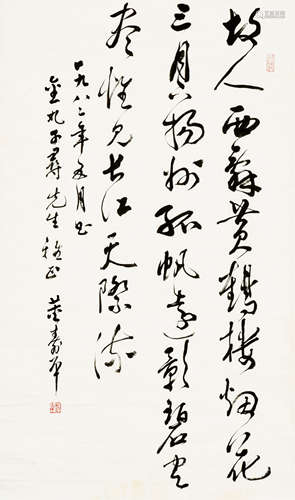 故人西辭黃鶴樓烟花
三月下揚州孤帆遠影碧空
盡惟見長江天際流
一九八二年五月书
先生雅正 董寿平